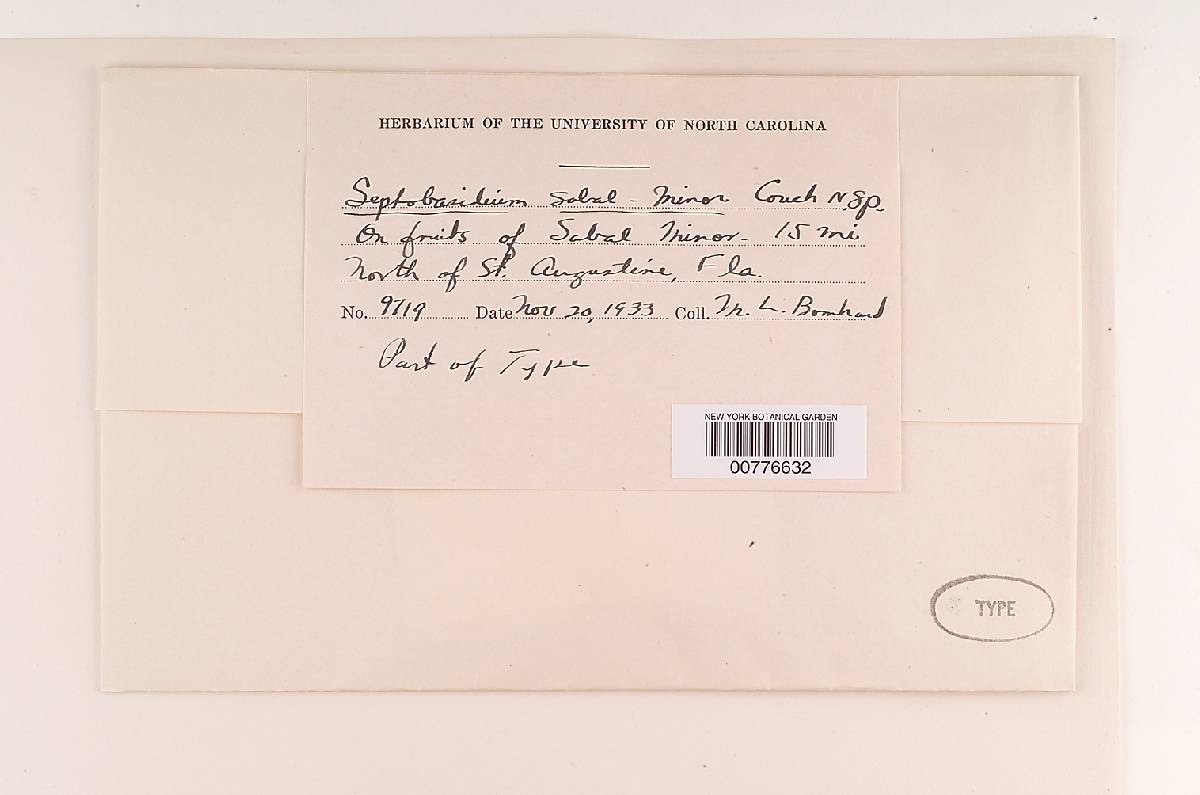 HERBARIUM OF THE UNIVERSITY OF NORTH CAROLINA
Septobasidium sabal-minor Couch N.Sp.
On fruits of Sabal Minor - 15 mi
North of St. Augustine, Fla.
No. 9719 Date Nov 20, 1933 Coll. M. L. Bomhard
Part of Type
NEW YORK BOTANICAL GARDEN
00776632
TYPE